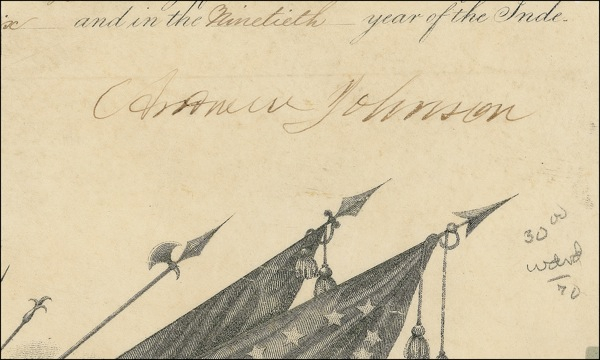 ix and in the Ninetieth year of the Inde-
Andrew Johnson
30
70